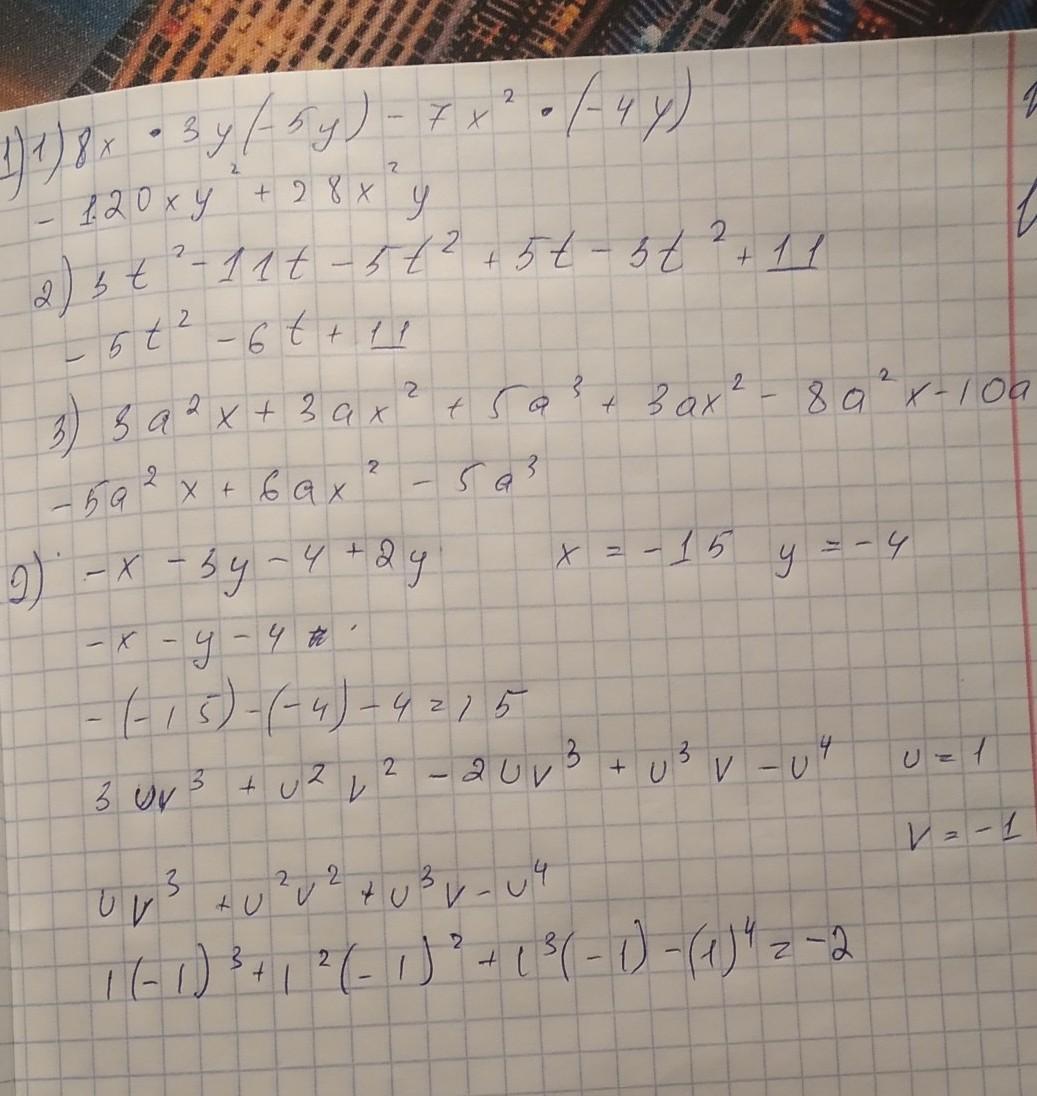 1) 1) 8x · 3y(-5y) - 7x² · (-4y)
- 120xy² + 28x²y
2) 3t² - 11t - 5t² + 5t - 3t² + 11
- 5t² - 6t + 11
3) 3a²x + 3ax² + 5a³ + 3ax² - 8a²x - 10a
- 5a²x + 6ax² - 5a³
2) -x - 3y - 4 + 2y x = -15 y = -4
-x - y - 4
-(-15) - (-4) - 4 = 15
3uv³ + u²v² - 2uv³ + u³v - u⁴ u = 1
v = -1
uv³ + u²v² + u³v - u⁴
1(-1)³ + 1²(-1)² + 1³(-1) - (1)⁴ = -2